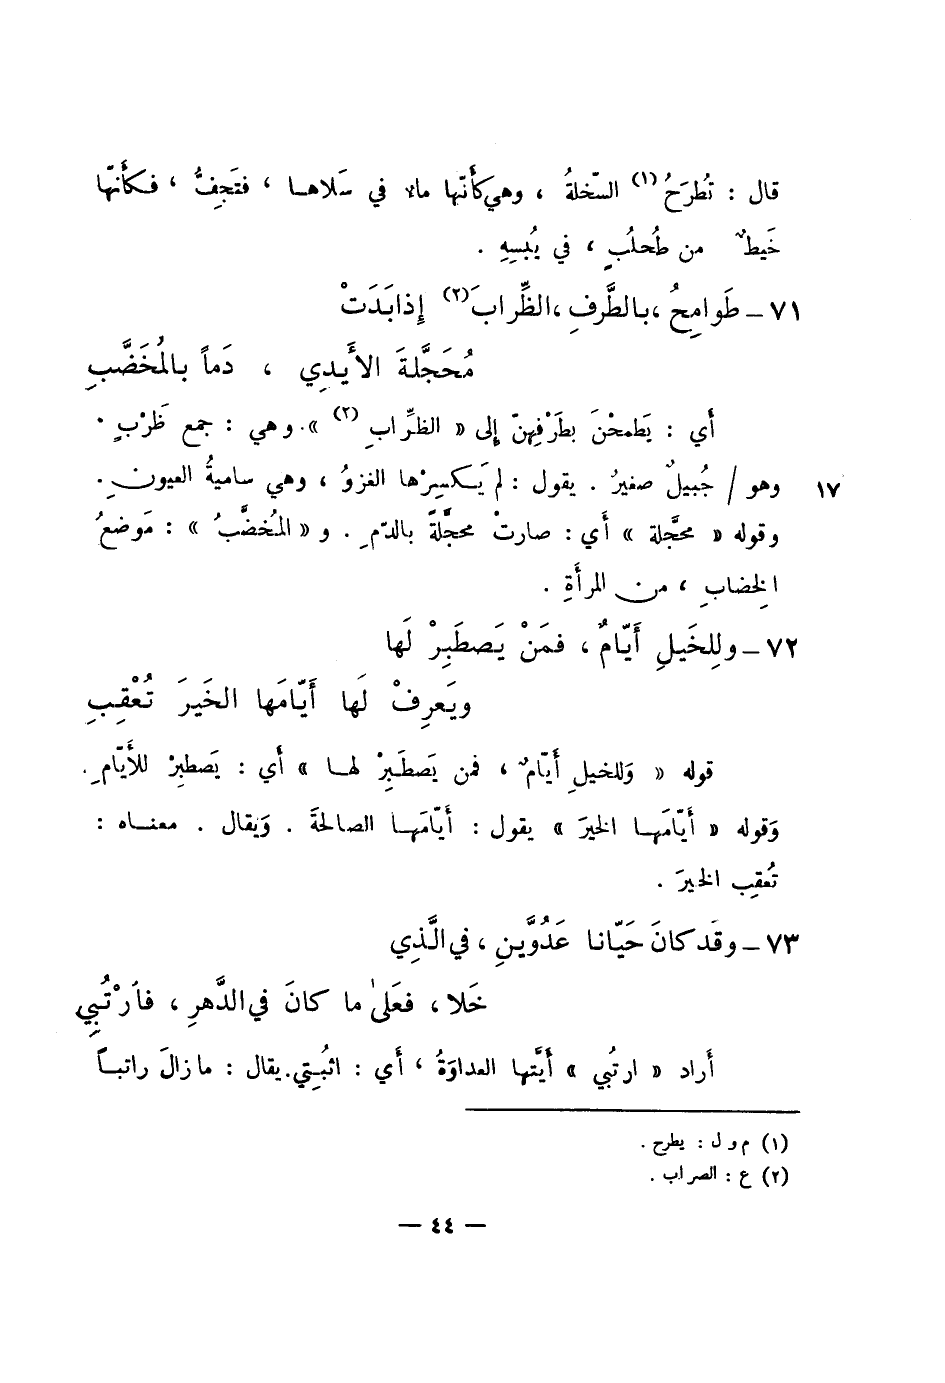 قال : تُطرَحُ (١) السّخلةُ ، وهي كأنّها ماء في سَلاهـا ، فتَجِفُّ ، فـكأنّها
خَيطٌ من طُحلُبٍ ، في يُبسِهِ .
٧١ – طَوامِحُ ، بالطَّرفِ ، الظِّرابَ (٢) إِذا بَدَتْ
مُحَجَّلةَ الأَيدِي ، دَماً بالمُخَضَّبِ
أَي : يَطمحْنَ بطَرْفِهِنّ إِلى « الظرِّابِ (٢) » . وهي : جمع ظَرْبٍ .
١٧ وهو / جُبيلٌ صغيرُ . يقول : لم يَكسِرْها الغزوُ ، وهي ساميةُ العيونِ .
وقوله « محجَّلة » أَي : صارتْ محجَّلةً بالدّمِ . و « المُخضَّبُ » : مَوضعُ
الخِضابِ ، من المرأَةِ .
٧٢ – وللِخَيلِ أَيّامٌ ، فمَنْ يَصطَبِرْ لَها
ويَعرِفْ لَها أَيّامَها الخَيرَ تُعْقِبِ
قوله « وَللخيلِ أَيّامٌ ، فمن يَصطَـبِرْ لهـا » أَي : يَصطبِرْ للأَيّامِ .
وَقوله « أَيّامَهـا الخيرَ » يقول : أَيّامَهـا الصالحةَ . وَيقال . معنـاه :
تُعقِب الخيرَ .
٧٣ – وقَد كانَ حَيّانا عَدُوَّينِ ، في الَّذِي
خَلا ، فعَلىٰ ما كانَ في الدَّهرِ ، فارْتُبِي
أَراد « ارتُبي » أَيَّتها العداوَةُ ، أَي : اثبُـتِي . يقال : ما زالَ راتبـاً
(١) م و ل : يطرح .
(٢) ع : الصراب .
— ٤٤ —